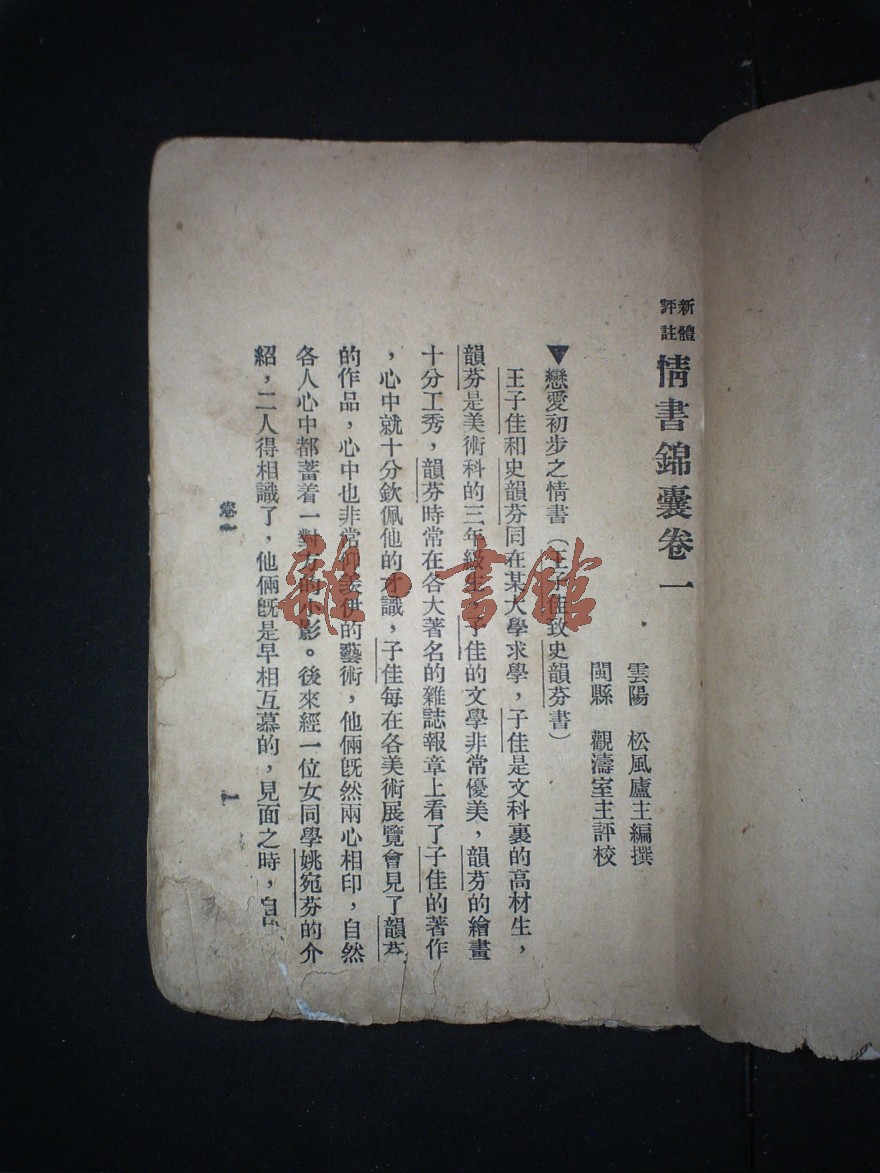 新體
評註
情書錦囊卷一
雲陽 松風廬主編撰
閩縣 觀濤室主評校
▼戀愛初步之情書(王子佳致史韻芬書)
王子佳和史韻芬同在某大學求學,子佳是文科裏的高材生,
韻芬是美術科的三年級生,子佳的文學非常優美,韻芬的繪畫
十分工秀,韻芬時常在各大著名的雜誌報章上看了子佳的著作
,心中就十分欽佩他的才識,子佳每在各美術展覽會見了韻芬
的作品,心中也非常仰羨伊的藝術,他倆旣然兩心相印,自然
各人心中都蓄着一對方的小影。後來經一位女同學姚宛芬的介
紹,二人得相識了,他倆旣是早相互慕的,見面之時,自
卷一
一
雜·書館